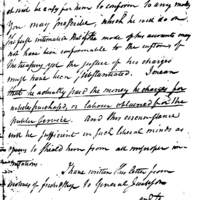 will be easy for him to conform to any mode
You may prescribe, which he will do on
the fullest intimation that the mode of his accounts may
not have been conformable to the customs of
the treasury yet the justice of his charges
must have been substantiated. I mean
that he actually paid the money he charges for
articles purchased, or labour obtained for the
public service. And this circumstance
will be sufficient in such liberal minds as
to shield him from all improper im-
putations.
I have written this letter from
motives of friendship to General
and to